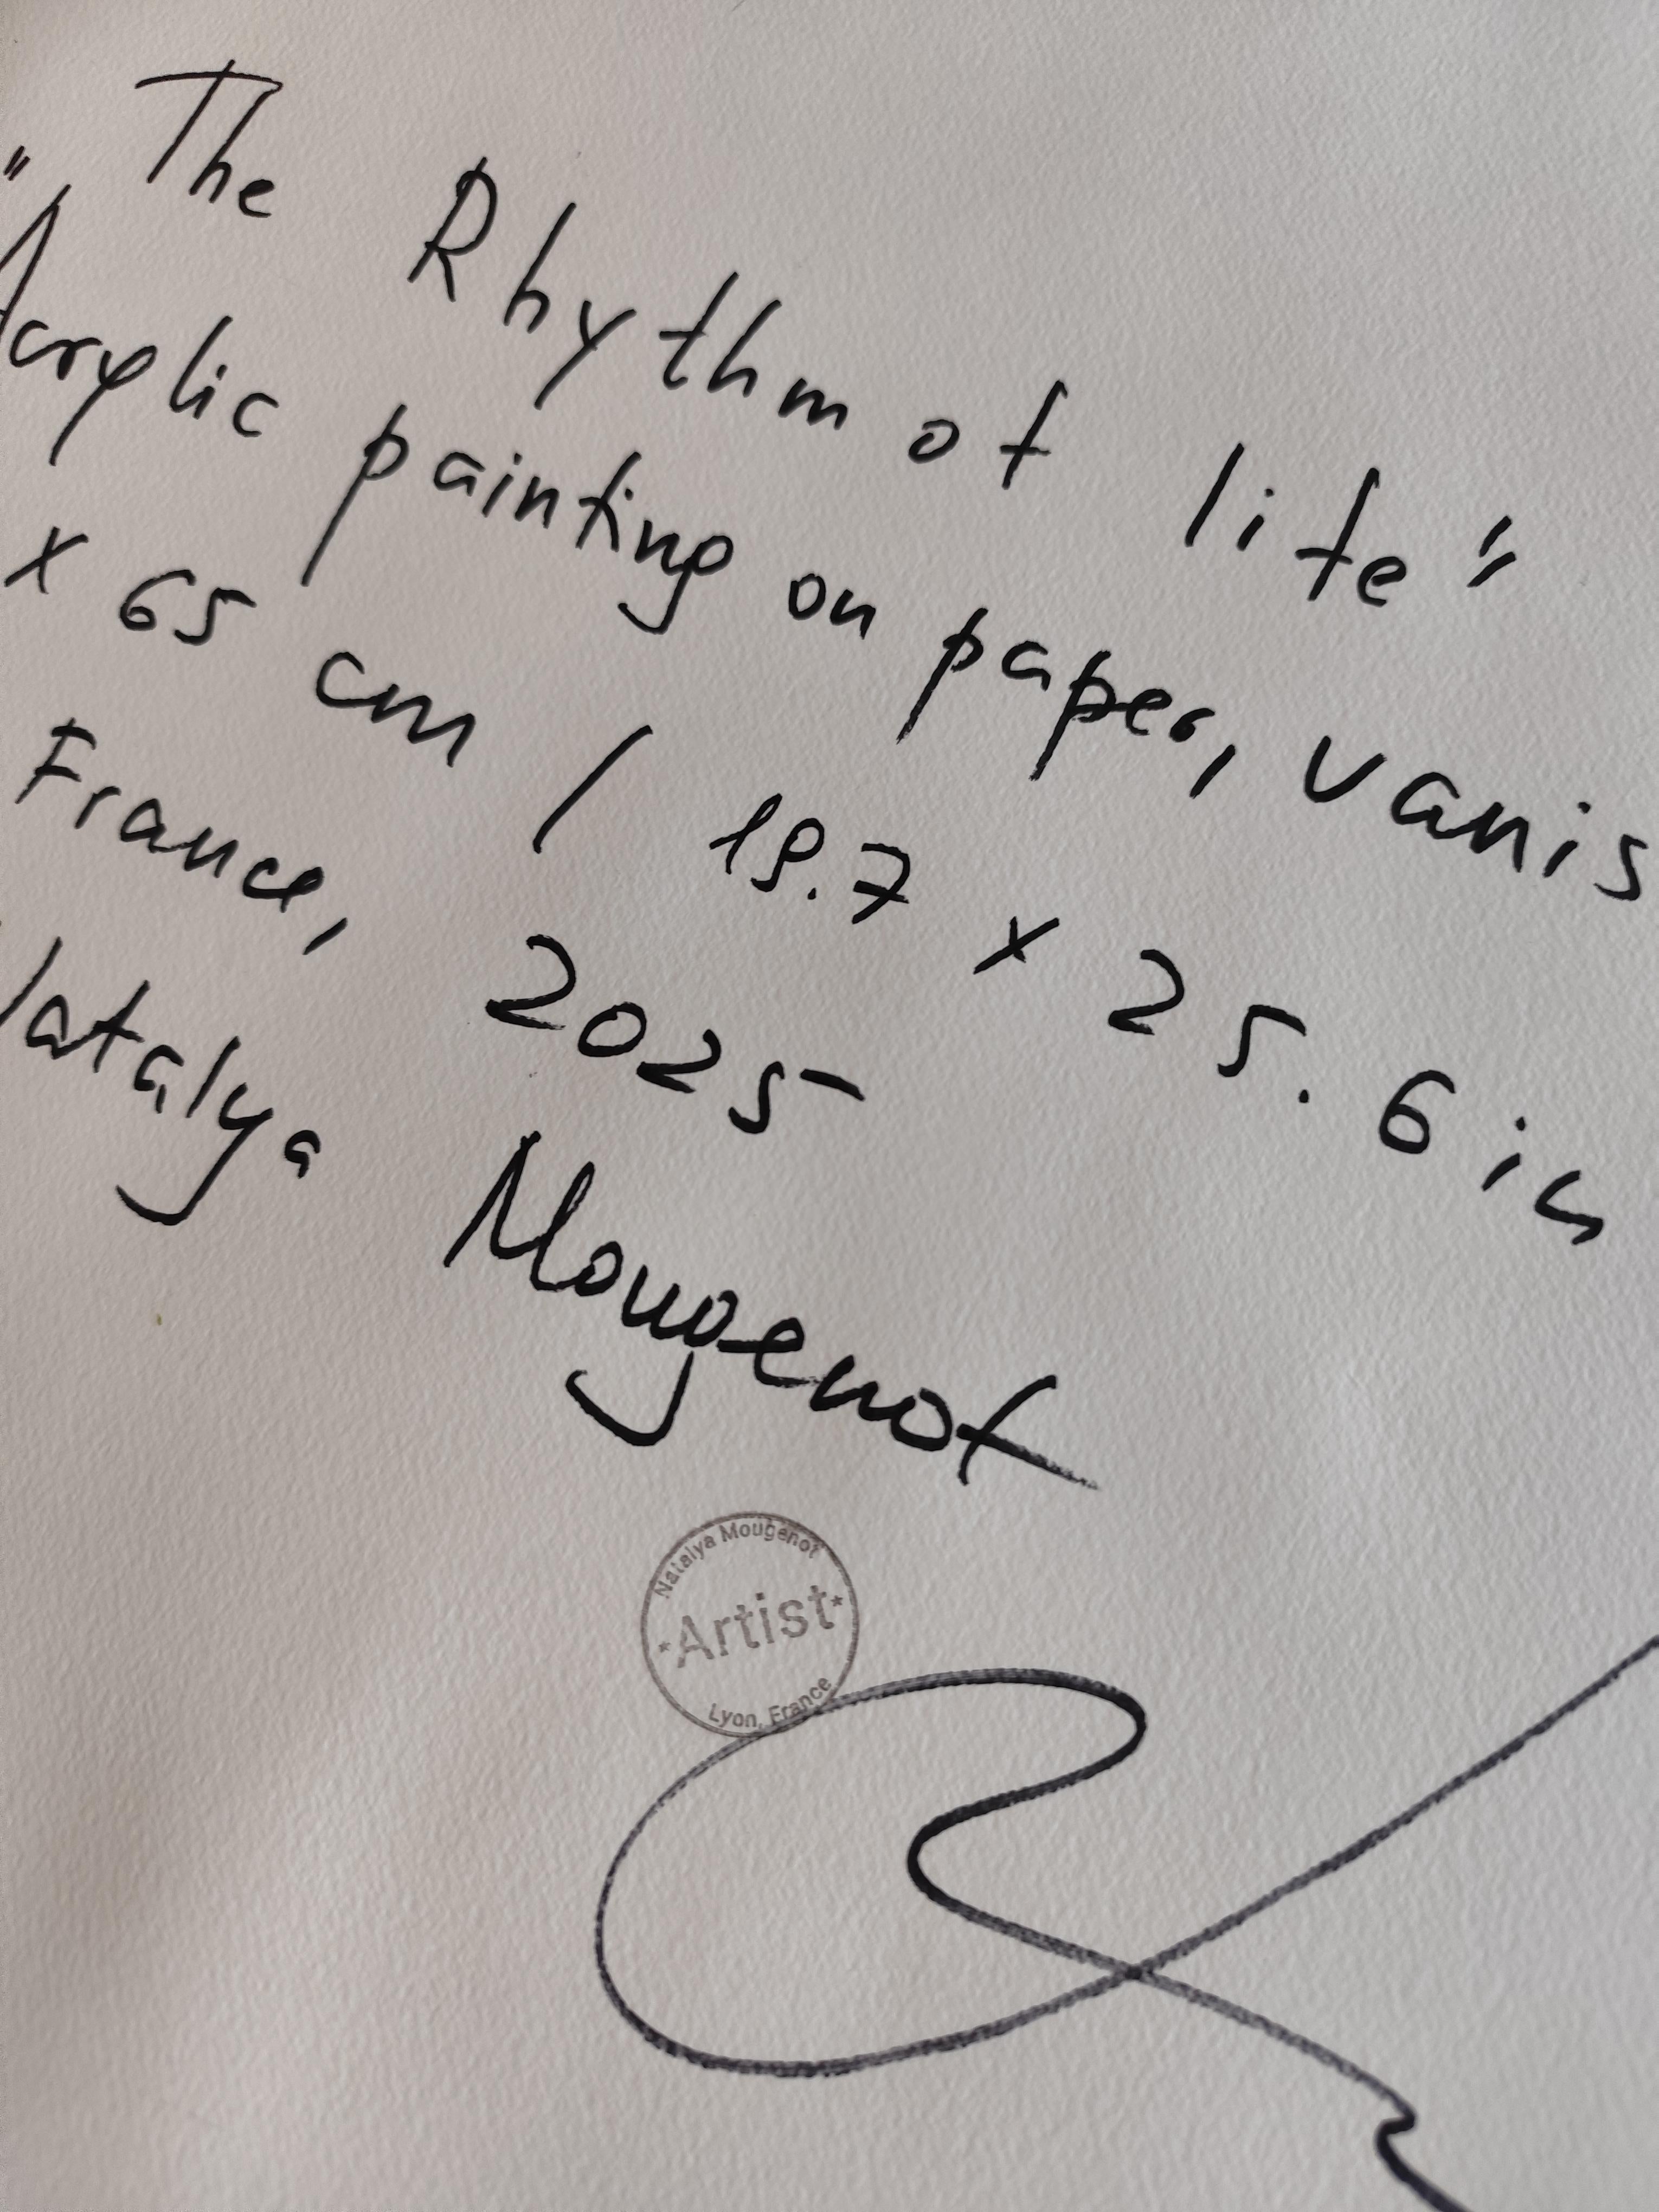 "The Rhythm of life"
Acrylic painting on paper, vanis
x 65 cm / 19.7 x 25.6 in
France, 2025
Natalya Mougenot
Natalya Mougenot
*Artist*
Lyon, France